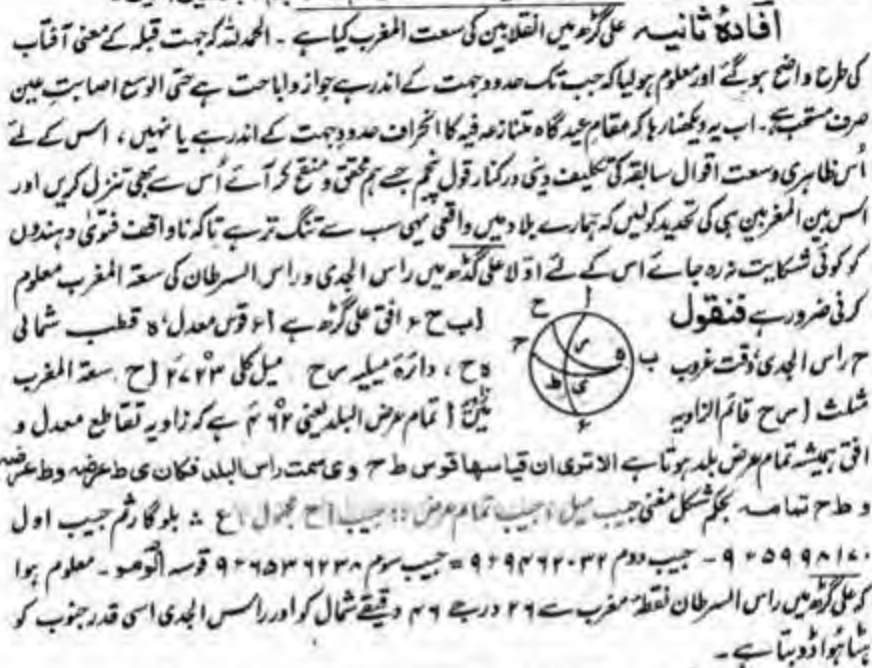 افادۂ ثانیہ علی گڑھ میں انقلابین کی سعت المغرب کیا ہے ۔ الحمدللہ کہ جہت قبلہ کے معنی آفتاب
کی طرح واضح ہوگئے اور معلوم ہولیا کہ جب تک حدود جہت کے اندر ہے جواز و اباحت ہے حتی الوسع اصابتِ عین
صرف مستحب ہے ۔ اب یہ دیکھنا رہا کہ مقام عیدگاہ متنازعہ فیہ کا انحراف حدودِ جہت کے اندر ہے یا نہیں ، اس کے لئے
اُس ظاہری وسعت اقوال سابقہ کی تکلیف دینی درکنار قول پنجم جسے ہم محقق و منقح کر آئے اُس سے بھی تنزل کریں اور
اس بین المغربین ہی کی تحدید کولیں کہ ہمارے بلاد میں واقعی یہی سب سے تنگ تر ہے تاکہ ناواقف فتویٰ دہندوں
کو کوئی شکایت نہ رہ جائے اس کے لئے اوّلا علی گڈھ میں راس الجدی و راس السرطان کی سعۃ المغرب معلوم
کرنی ضرور ہے فنقول
ا ب ح ء افق علی گڑھ ہے ا ء قوس معدل ہ قطب شمالی
ح راس الجدی وقت غروب
ہ ح ، دائرہ میلیہ س ح میل کلی ۲۳ ۲۷ ا ح سعۃ المغرب
مثلث ا س ح قائم الزاویہ
ا تمام عرض البلد یعنی ۶۲ ہے کہ زاویہ تقاطع معدل و
افق ہمیشہ تمام عرض بلد ہوتا ہے الا تری ان قیاسہا قوس ط ح و ی سمت راس البلد فکان ی ط عرضہ و ط
و ط ح تمامہ بحکم شکل مغنی جیب میل جیب تمام عرض جیب ا ح مجہول ا ع : بلوگارثم جیب اول
۹ ء ۵۹۹۸۱۷۰ - جیب دوم ۹ ء ۹۴۶۲۰۳۲ = جیب سوم ۹ ء ۶۵۳۶۲۳۸ قوسہ - معلوم ہوا
کہ علی گڑھ میں راس السرطان نقطہ مغرب سے ۲۶ درجے ۴۶ دقیقے شمال کو اور راس الجدی اسی قدر جنوب کو
ہٹا ہوا ڈوبتا ہے ۔